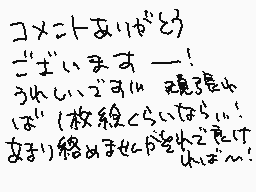 コメントありがとう
ございますー!
うれしいです!!! 頑張れ
ば1枚絵くらいなら...!
あまり絡めませんがそれで良け
れば〜!